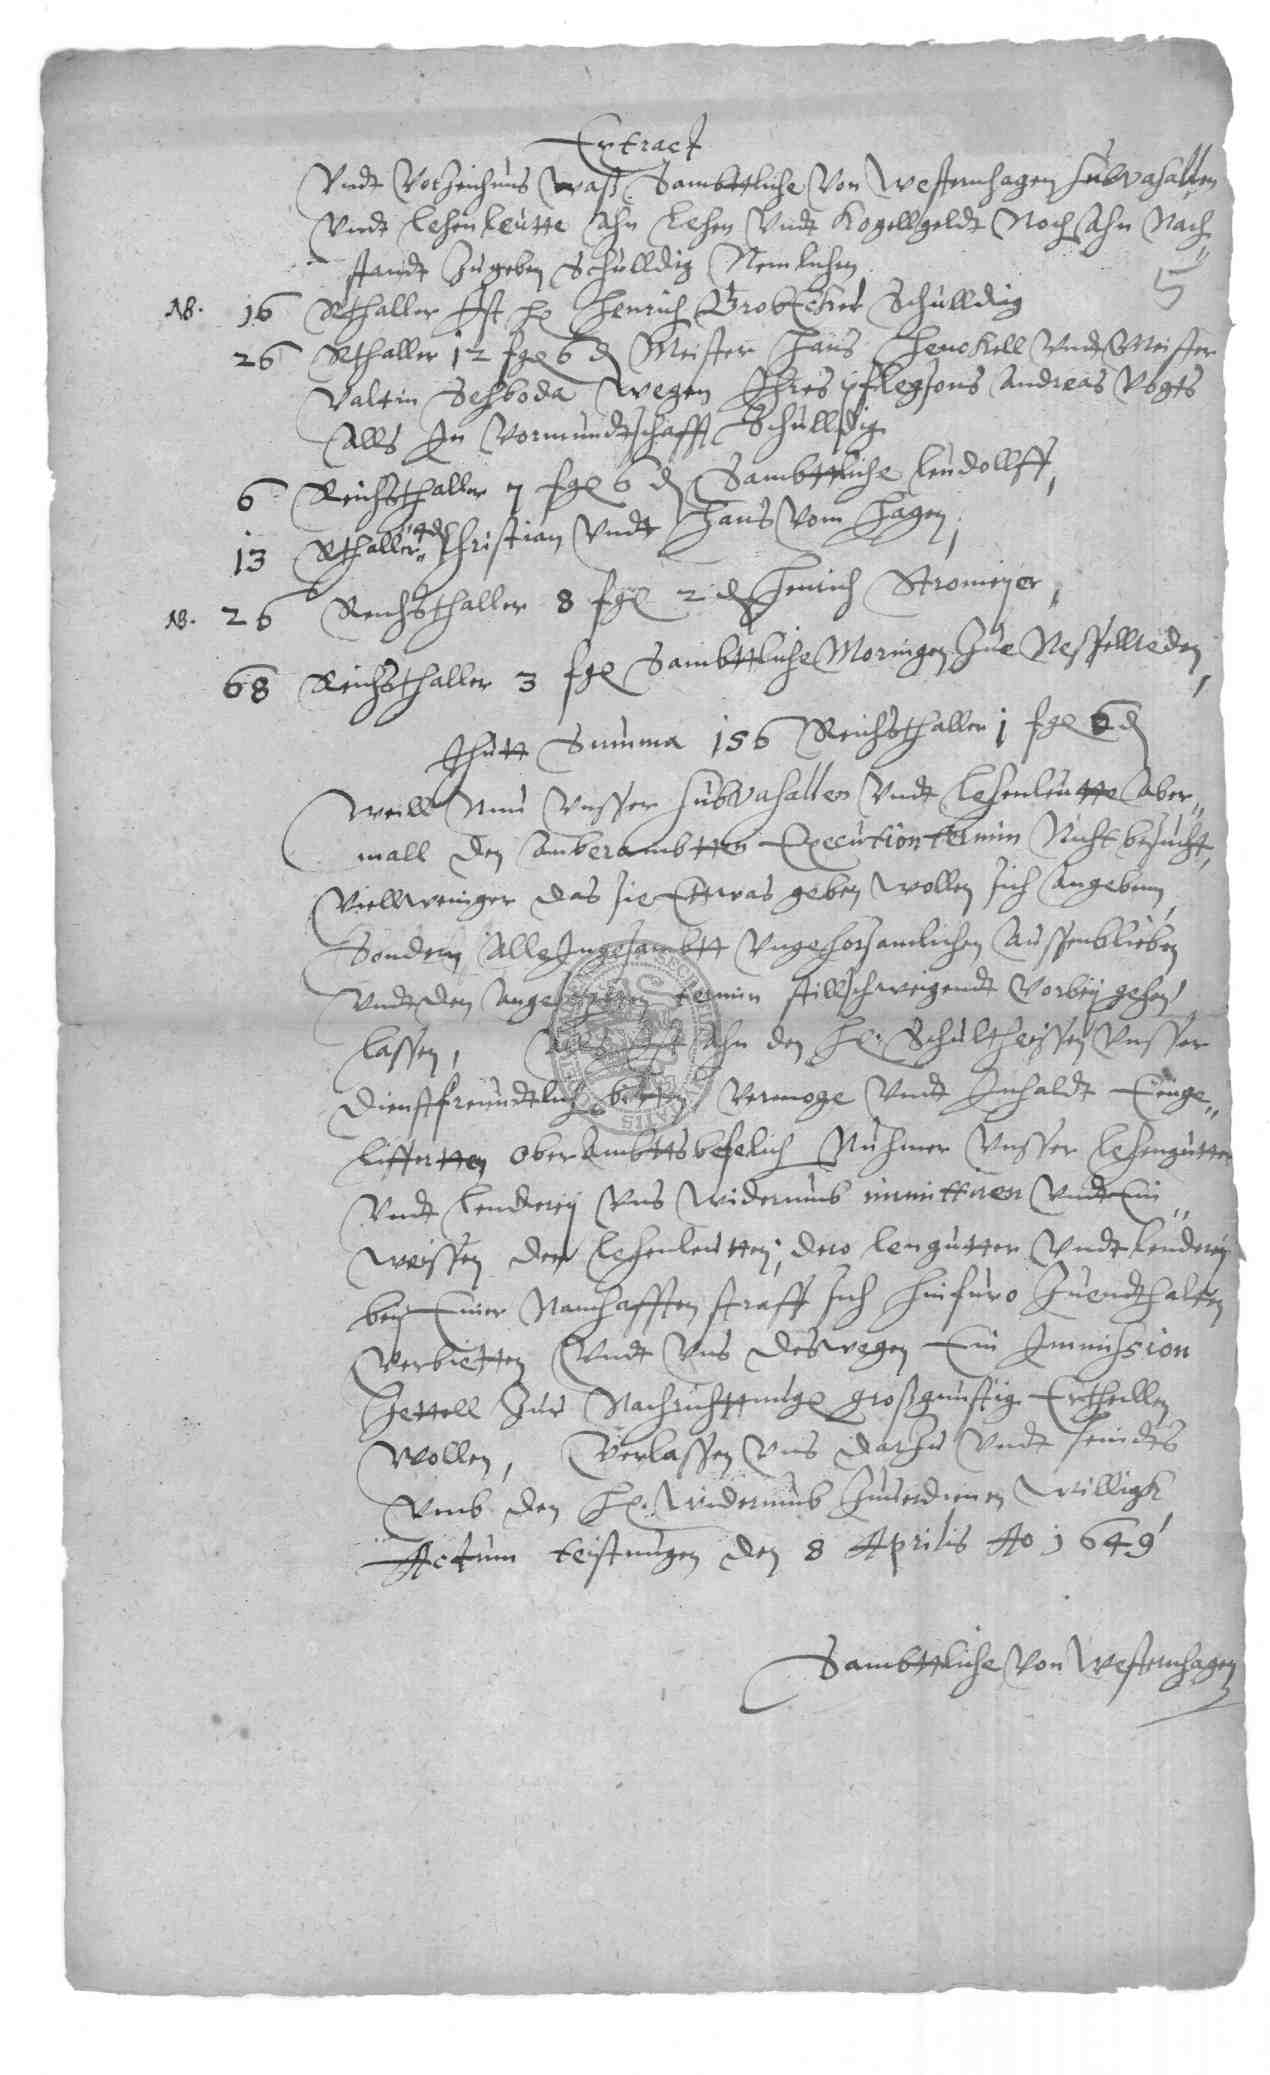 Extract
Vndt Vorzeichnus Waß Sambttliche Von Westernhagen subvasallen
Vndt Lehenleutte Ahn Lehen Vndt Kogellgeldt Noch Ahn Nach„
standt Zugeben Schulldig Nemlichen 5
NB. 16 Rthaller Ist H Henrich Grobecker Schulldig
26 Rthaller 12 sgl 6 d Meister Hans Henckell Vndt Meister
Valtin Sehboda Wegen Ihres pflegsons Andreas Vogts
Alls In Vormundtschafft Schulldig
6 Reichsthaller 7 sgl 6 d Sambttliche Leudollff,
13 Rthaller 4 d Christian Vndt Hans Vom Hagen,
NB. 26 Reichsthaller 8 sgl 2 d Henrich Stromeyer,
68 Reichsthaller 3 sgl Sambttliche Moringen Zue Nesselrieden,
Thutt Summa 156 Reichsthaller 1 sgl 6 d
Weill Nuu Vnsser subvasallen Vndt Lehenleutte Aber„
mall den Anberambtten Execution termin Nicht besucht,
Viellweniger das sie Ettwas geben Wollen sich Angeben,
Sondern Alle Ingesambtt Vngehorsamlichen Aussenblieben
Vndt den Angesetzten termin stillschweigendt Vorbey gehen
lassen, Ahn den H. Schultheissen Vnsser
Dienstfreundtlich bitten Vermoge Vndt Inhaldt Einge„
lifferten OberAmbttsbefelich Nuhmer Vnsser Lehengutter
Vndt Lenderey Vns Widerumb immittiren Vndt Ein„
weissen den Lehenleutten, dero Lengutter Vndt Lenderey
bey Einer Namhafften straff sich hinfuro Zuendthalten
Verbietten Vndt Vns desswegen Ein Immission
Zettell Zur Nachrichttunge großgunstig Ertheillen
Wollen, Verlassen Vns darzu Vndt seindes
Vmb den H. Widerumb Zuverdienen Willigk
Actum Teistungen den 8 Aprilis Ao 1649
Sambttliche Von Westernhagen